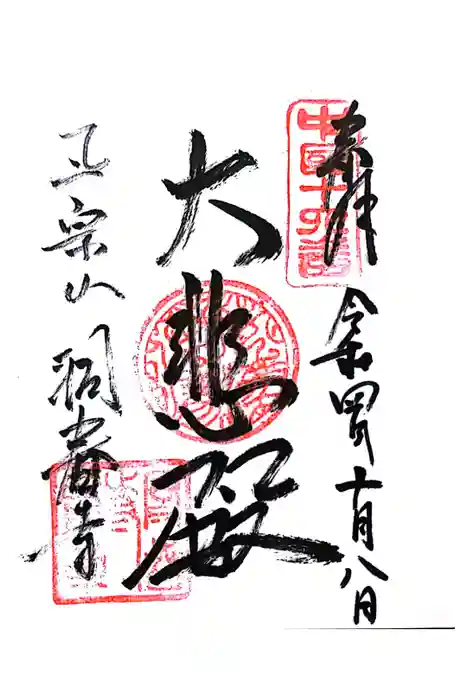 奉拝
令和四年十月八日
大悲殿
正宗山 洞春寺